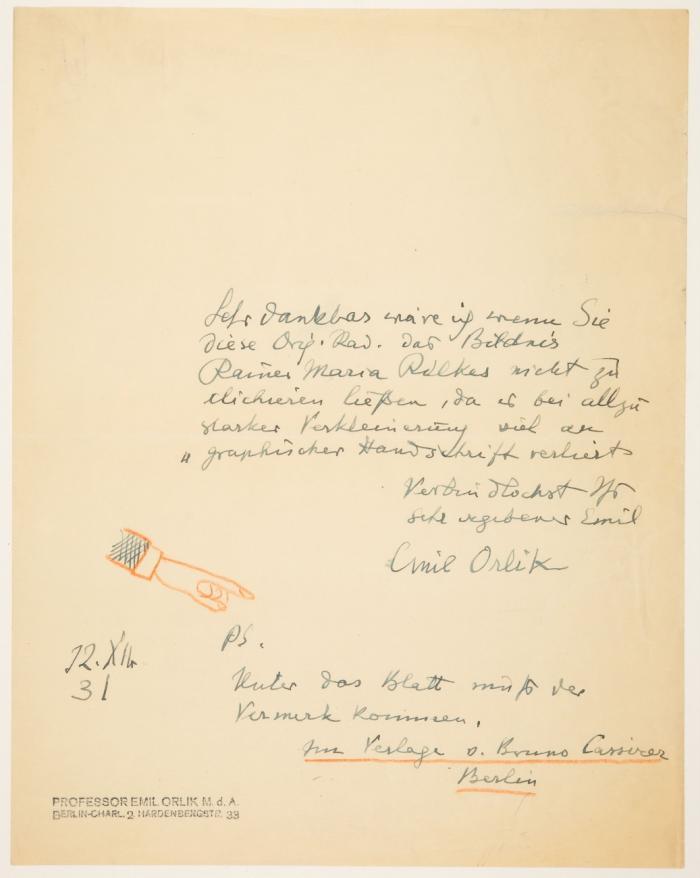 Sehr dankbar wäre ich wenn Sie
diese Orig. Rad. das Bildnis
Rainer Maria Rilkes nicht zu
clichieren ließen, da es bei allzu
starker Verkleinerung viel an
„ graphischer Handschrift verliert
Verbindlichst Ihr
sehr ergebener Emil
Emil Orlik
PS.
12. XII.
31
Unter das Blatt muß der
Vermerk kommen,
im Verlage v. Bruno Cassirer
Berlin
PROFESSOR EMIL ORLIK M. d. A.
BERLIN-CHARL. 2 HARDENBERGSTR. 33